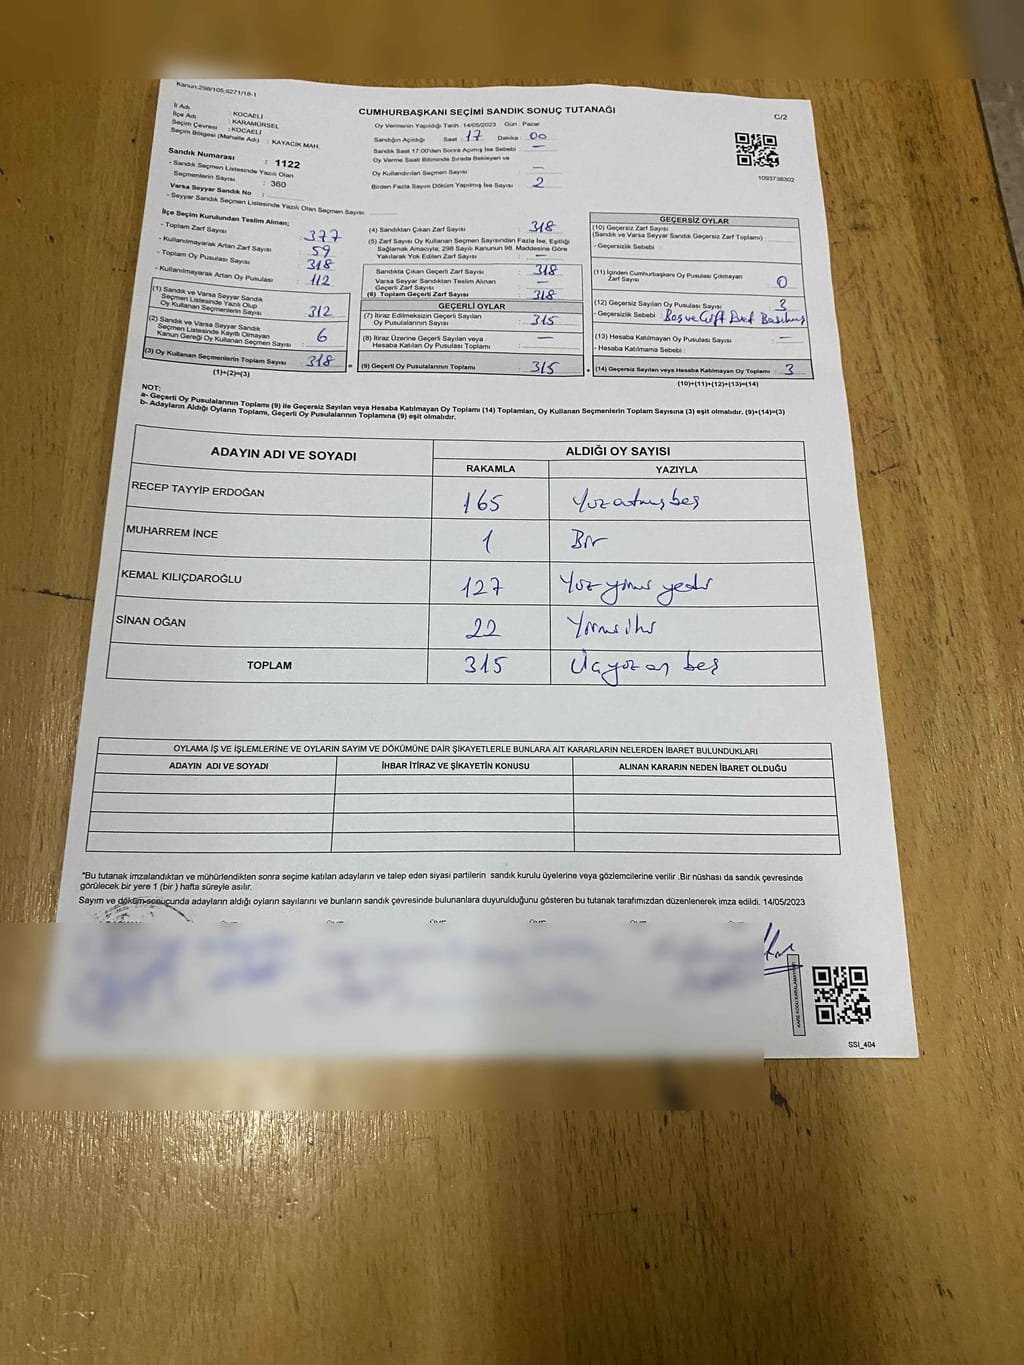 Kanun:298/105,6271/18-1
CUMHURBAŞKANI SEÇİMİ SANDIK SONUÇ TUTANAĞI
C/2
İl Adı : KOCAELİ
İlçe Adı : KARAMÜRSEL
Seçim Çevresi : KOCAELİ
Seçim Bölgesi (Mahalle Adı) : KAYACIK MAH.
Sandık Numarası : 1122
- Sandık Seçmen Listesinde Yazılı Olan
Seçmenlerin Sayısı : 360
Varsa Seyyar Sandık No :
- Seyyar Sandık Seçmen Listesinde Yazılı Olan Seçmen Sayısı
Oy Vermenin Yapıldığı Tarih : 14/05/2023 Gün : Pazar
Sandığın Açıldığı Saat : 17 Dakika : 00
Sandık Saat 17:00'den Sonra Açılmış İse Sebebi : —
Oy Verme Saati Bitiminde Sırada Bekleyen ve
Oy Kullandırılan Seçmen Sayısı : —
Birden Fazla Sayım Döküm Yapılmış İse Sayısı : 2
1093738302
İlçe Seçim Kurulundan Teslim Alınan;
- Toplam Zarf Sayısı : 377
- Kullanılmayarak Artan Zarf Sayısı : 59
- Toplam Oy Pusulası Sayısı : 318
- Kullanılmayarak Artan Oy Pusulası : 112
(1) Sandık ve Varsa Seyyar Sandık
Seçmen Listesinde Yazılı Olup
Oy Kullanan Seçmenlerin Sayısı : 312
(2) Sandık ve Varsa Seyyar Sandık
Seçmen Listesinde Kayıtlı Olmayan
Kanun Gereği Oy Kullanan Seçmen Sayısı : 6
(3) Oy Kullanan Seçmenlerin Toplam Sayısı : 318
(1)+(2)=(3)
(4) Sandıktan Çıkan Zarf Sayısı : 318
(5) Zarf Sayısı Oy Kullanan Seçmen Sayısından Fazla İse, Eşitliği
Sağlamak Amacıyla; 298 Sayılı Kanunun 98. Maddesine Göre
Yakılarak Yok Edilen Zarf Sayısı : —
Sandıkta Çıkan Geçerli Zarf Sayısı : 318
Varsa Seyyar Sandıktan Teslim Alınan
Geçerli Zarf Sayısı : —
(6) Toplam Geçerli Zarf Sayısı : 318
GEÇERLİ OYLAR
(7) İtiraz Edilmeksizin Geçerli Sayılan
Oy Pusulalarının Sayısı : 315
(8) İtiraz Üzerine Geçerli Sayılan veya
Hesaba Katılan Oy Pusulası Toplamı : —
= (9) Geçerli Oy Pusulalarının Toplamı : 315
GEÇERSİZ OYLAR
(10) Geçersiz Zarf Sayısı
(Sandık ve Varsa Seyyar Sandık Geçersiz Zarf Toplamı) :
- Geçersizlik Sebebi :
(11) İçinden Cumhurbaşkanı Oy Pusulası Çıkmayan
Zarf Sayısı : 0
(12) Geçersiz Sayılan Oy Pusulası Sayısı : 3
- Geçersizlik Sebebi : Boş ve Çift
(13) Hesaba Katılmayan Oy Pusulası Sayısı : —
- Hesaba Katılmama Sebebi :
+ (14) Geçersiz Sayılan veya Hesaba Katılmayan Oy Toplamı : 3
(10)+(11)+(12)+(13)=(14)
NOT:
a- Geçerli Oy Pusulalarının Toplamı (9) ile Geçersiz Sayılan veya Hesaba Katılmayan Oy Toplamı (14) Toplamları, Oy Kullanan Seçmenlerin Toplam Sayısına (3) eşit olmalıdır. (9)+(14)=(3)
b- Adayların Aldığı Oyların Toplamı, Geçerli Oy Pusulalarının Toplamına (9) eşit olmalıdır.
ADAYIN ADI VE SOYADI ALDIĞI OY SAYISI
RAKAMLA YAZIYLA
RECEP TAYYİP ERDOĞAN 165 Yüzatmışbeş
MUHARREM İNCE 1 Bir
KEMAL KILIÇDAROĞLU 127 Yüz yirmi yedi
SİNAN OĞAN 22 Yirmi iki
TOPLAM 315 Üçyüz on beş
OYLAMA İŞ VE İŞLEMLERİNE VE OYLARIN SAYIM VE DÖKÜMÜNE DAİR ŞİKAYETLERLE BUNLARA AİT KARARLARIN NELERDEN İBARET BULUNDUKLARI
ADAYIN ADI VE SOYADI İHBAR İTİRAZ VE ŞİKAYETİN KONUSU ALINAN KARARIN NEDEN İBARET OLDUĞU
*Bu tutanak imzalandıktan ve mühürlendikten sonra seçime katılan adayların ve talep eden siyasi partilerin sandık kurulu üyelerine veya gözlemcilerine verilir .Bir nüshası da sandık çevresinde
görülecek bir yere 1 (bir ) hafta süreyle asılır.
Sayım ve döküm sonucunda adayların aldığı oyların sayılarını ve bunların sandık çevresinde bulunanlara duyurulduğunu gösteren bu tutanak tarafımızdan düzenlenerek imza edildi. 14/05/2023
SSI_404